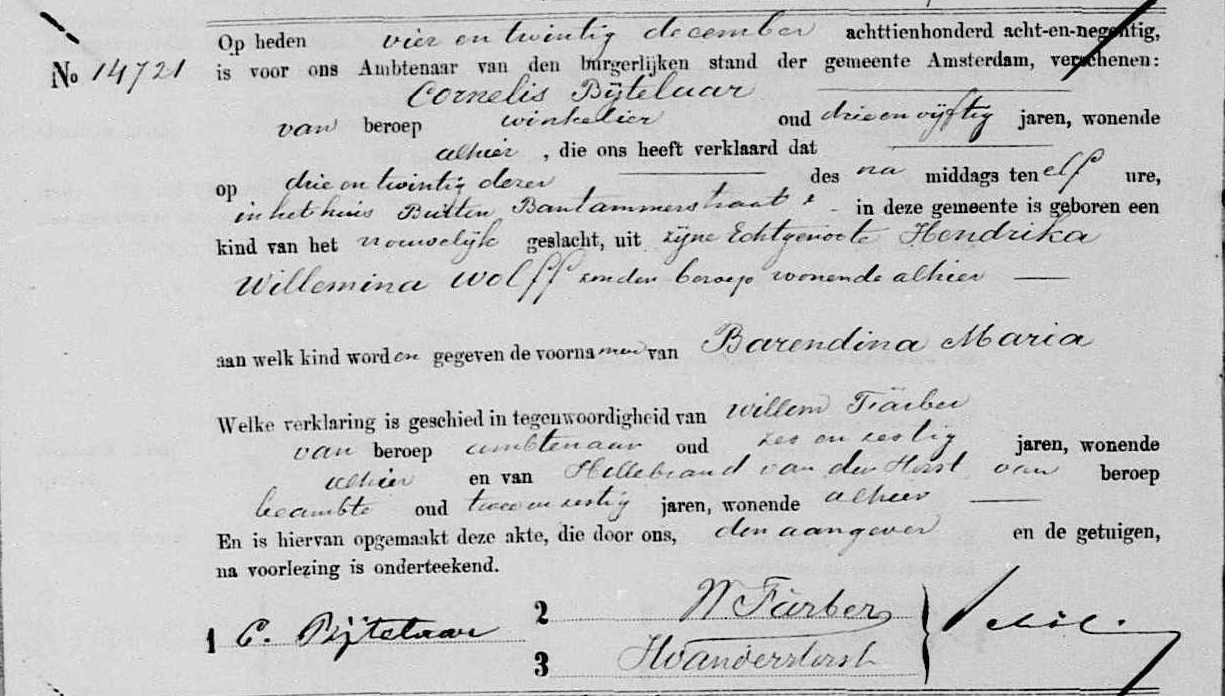 Op heden vier en twintig december achttienhonderd acht-en-negentig,
No 14721 is voor ons Ambtenaar van den burgerlijken stand der gemeente Amsterdam, verschenen:
Cornelis Bijtelaar
van beroep winkelier oud drie en vijftig jaren, wonende
alhier, die ons heeft verklaard dat
op drie en twintig dezer des na middags ten elf ure,
in het huis Buiten Bantammerstraat in deze gemeente is geboren een
kind van het vrouwelijk geslacht, uit zijne Echtgenoote Hendrika
Willemina Wolff zonder beroep wonende alhier
aan welk kind worden gegeven de voornamen van Barendina Maria
Welke verklaring is geschied in tegenwoordigheid van Willem Färber
van beroep ambtenaar oud zes en zestig jaren, wonende
alhier en van Hillebrand van der Horst van beroep
beambte oud twee en zestig jaren, wonende alhier
En is hiervan opgemaakt deze akte, die door ons, den aangever en de getuigen,
na voorlezing is onderteekend.
1 C. Bijtelaar 2 W Färber
3 HvanderHorst